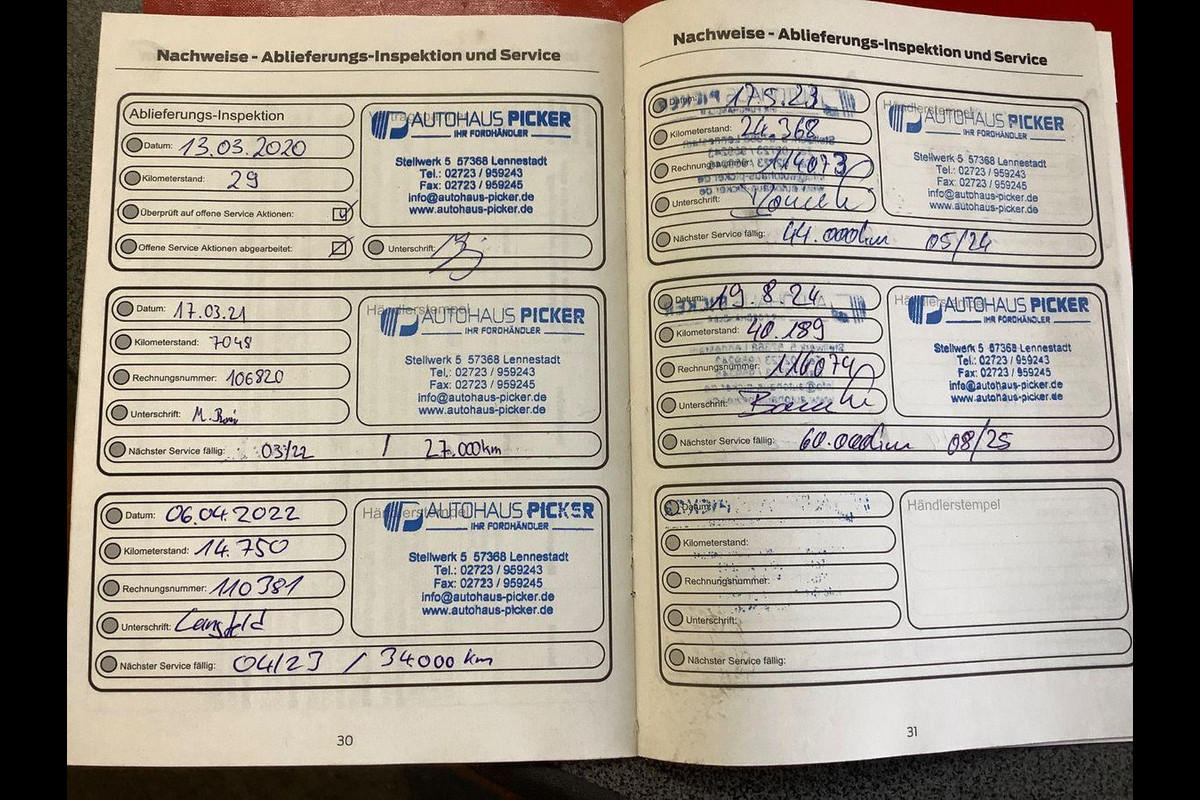 Nachweise - Ablieferungs-Inspektion und Service
Ablieferungs-Inspektion
Datum: 13.03.2020
Kilometerstand: 29
Überprüft auf offene Service Aktionen:
Offene Service Aktionen abgearbeitet:
AUTOHAUS PICKER
IHR FORDHÄNDLER
Stellwerk 5 57368 Lennestadt
Tel.: 02723 / 959243
Fax: 02723 / 959245
info@autohaus-picker.de
www.autohaus-picker.de
Unterschrift:
Datum: 17.03.21
Kilometerstand: 7048
Rechnungsnummer: 106820
Unterschrift:
Händlerstempel
AUTOHAUS PICKER
IHR FORDHÄNDLER
Stellwerk 5 57368 Lennestadt
Tel.: 02723 / 959243
Fax: 02723 / 959245
info@autohaus-picker.de
www.autohaus-picker.de
Nächster Service fällig: 03/22 / 27.000km
Datum: 06.04.2022
Kilometerstand: 14.750
Rechnungsnummer: 110381
Unterschrift:
AUTOHAUS PICKER
IHR FORDHÄNDLER
Stellwerk 5 57368 Lennestadt
Tel.: 02723 / 959243
Fax: 02723 / 959245
info@autohaus-picker.de
www.autohaus-picker.de
Nächster Service fällig: 04/23 / 34000 km
30
Nachweise - Ablieferungs-Inspektion und Service
Datum: 17.5.23
Kilometerstand: 24.368
Rechnungsnummer: 114073
Unterschrift:
Händlerstempel
AUTOHAUS PICKER
IHR FORDHÄNDLER
Stellwerk 5 57368 Lennestadt
Tel.: 02723 / 959243
Fax: 02723 / 959245
info@autohaus-picker.de
www.autohaus-picker.de
Nächster Service fällig: 44.000km 05/24
Datum: 19.8.24
Kilometerstand: 40.189
Rechnungsnummer: 116074
Unterschrift:
AUTOHAUS PICKER
IHR FORDHÄNDLER
Stellwerk 5 57368 Lennestadt
Tel.: 02723 / 959243
Fax: 02723 / 959245
info@autohaus-picker.de
www.autohaus-picker.de
Nächster Service fällig: 60.000km 08/25
Datum:
Kilometerstand:
Rechnungsnummer:
Unterschrift:
Händlerstempel
Nächster Service fällig:
31